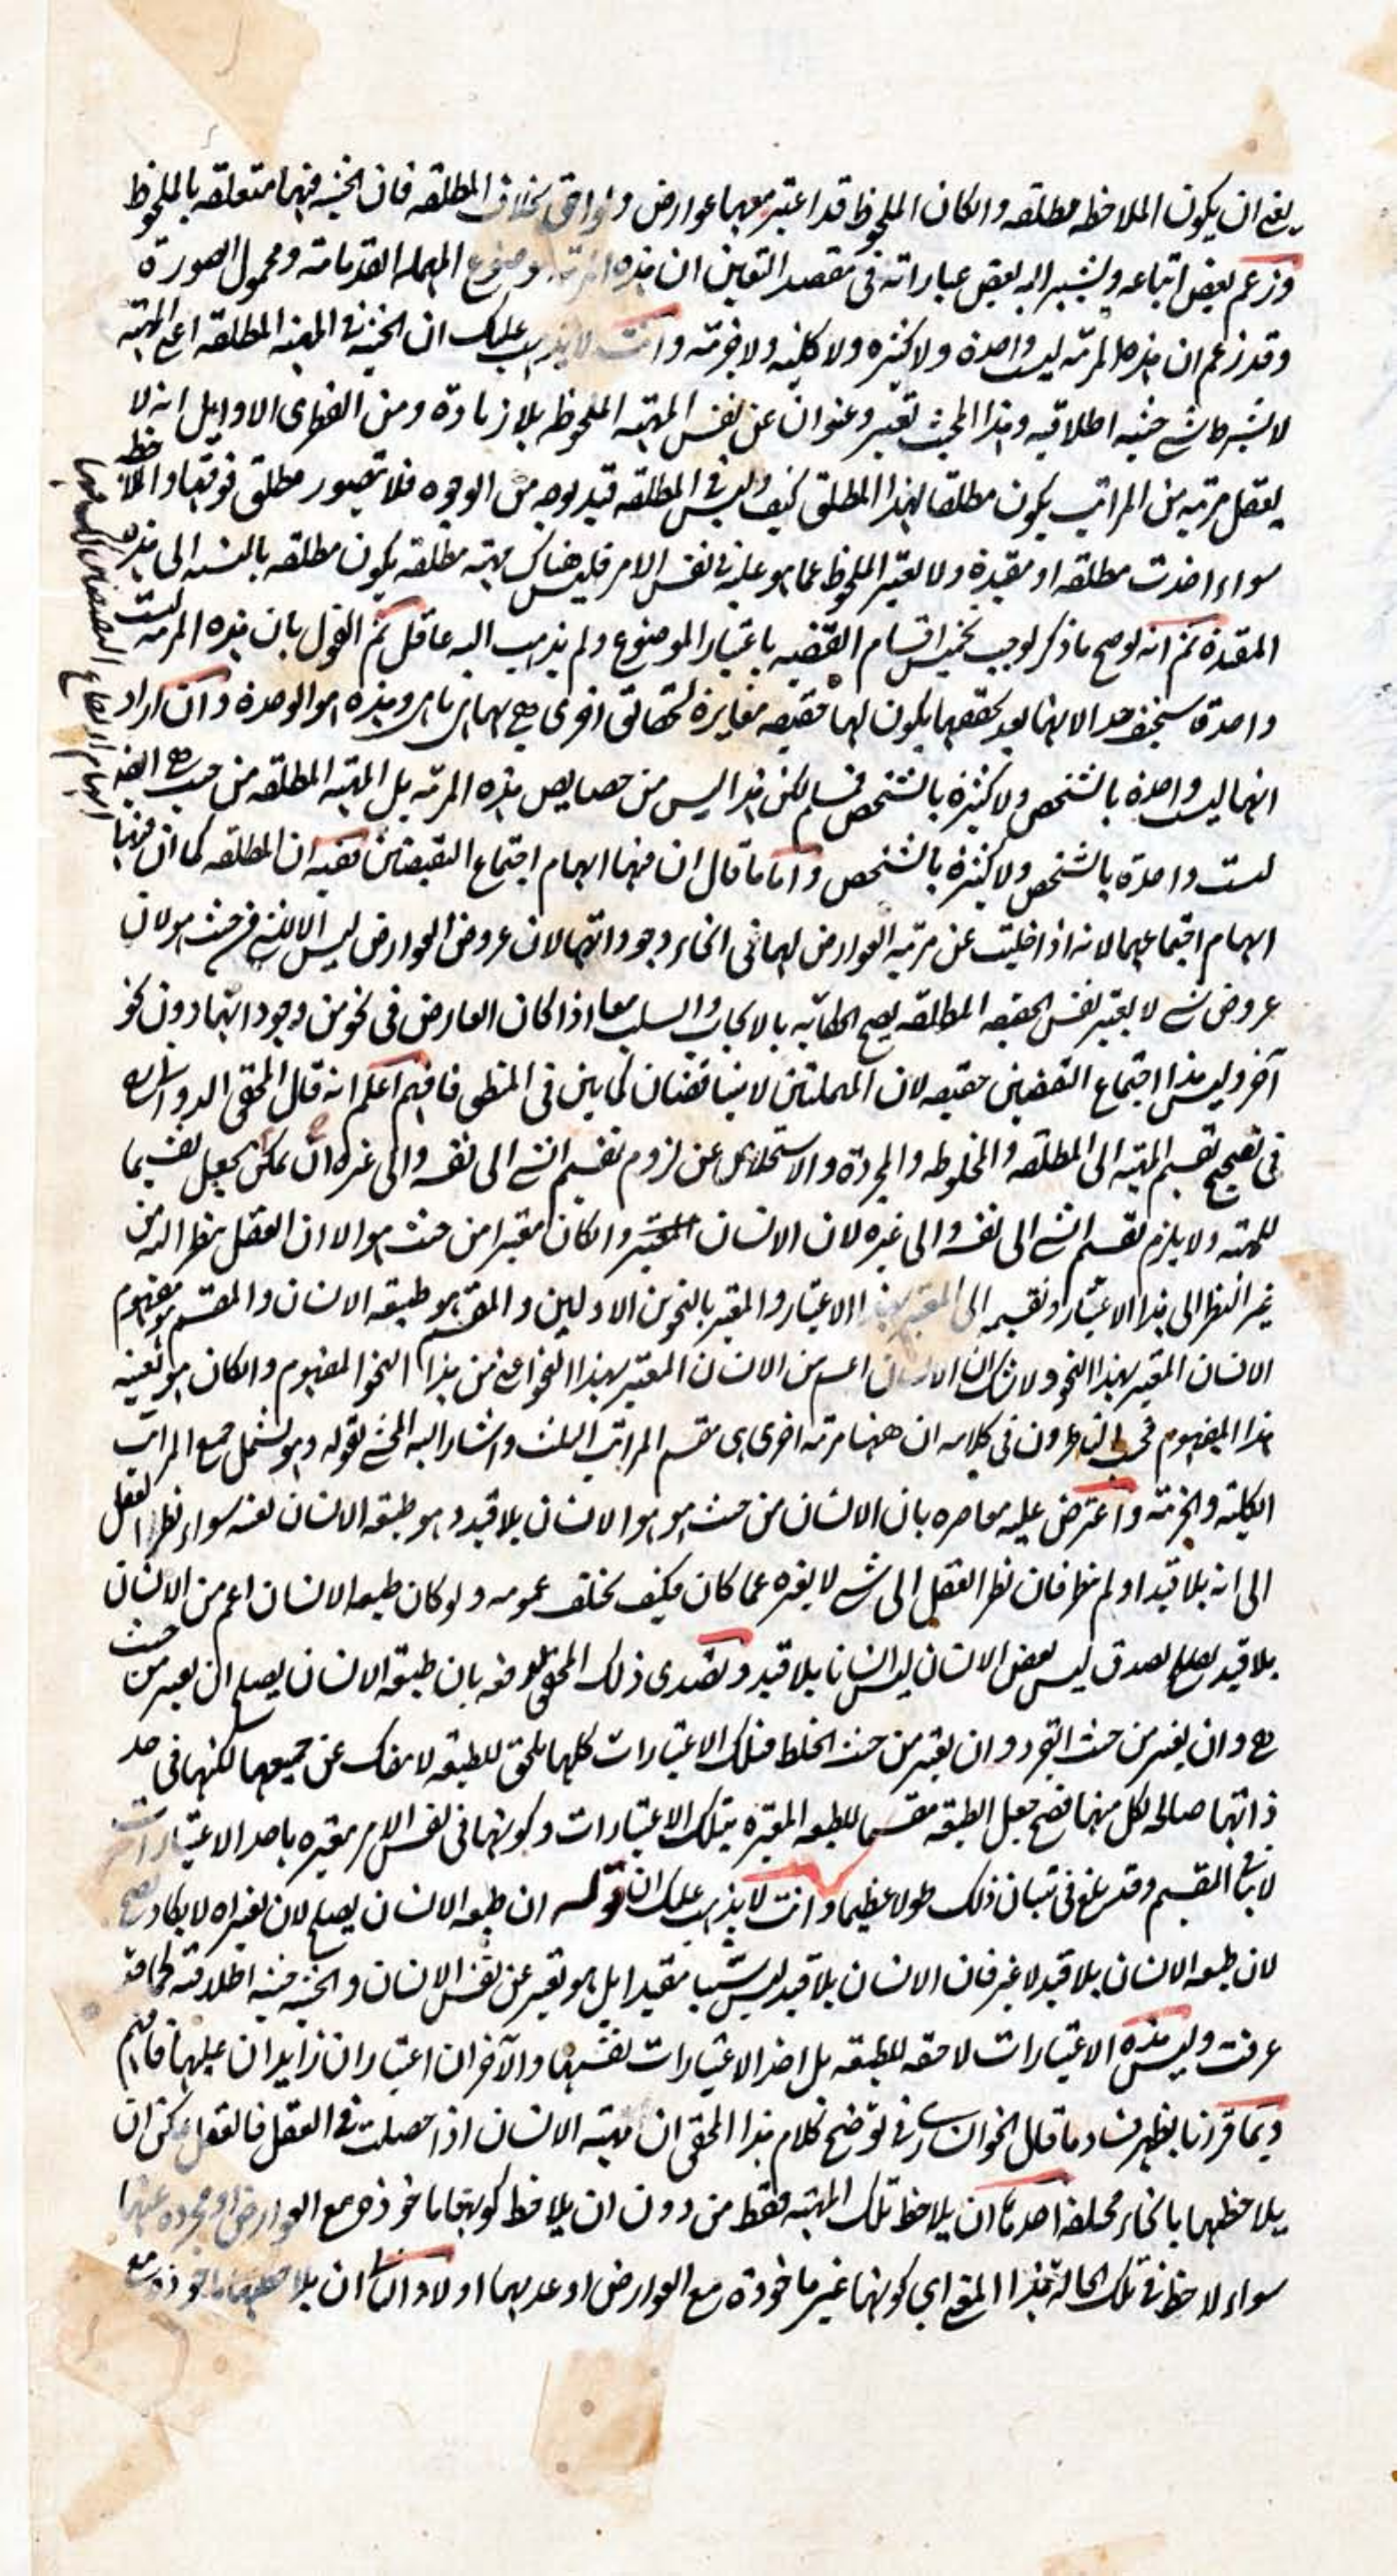 يعني ان يكون الملاحظه مطلقه وان كان الملحوظ قد اعتبر معها عوارض ولواحق بخلاف المطلقه فان الحيثيه فيها متعلقه بالملحوظ
وزعم بعض اتباعه ويشير اليه بعض عباراته في مقصد التعين ان هذه المرتبه موضوع المهمله القدمائيه ومحمول الصورة
وقد زعم ان هذه المرتبه ليست واحدة ولا كثيره ولا كليه ولا جزئيه وانت لا يذهب عليك ان الحيثيه في المهيه المطلقه اعني المهيه
لا بشرط شيء حيثيه اطلاقيه وهذا الحيث تعبير وعنوان عن نفس المهيه الملحوظه بلا زيادة ومن الفطري الاوايل انه لا
يعقل مرتبه من المراتب يكون مطلقا لهذا المطلق كيف وليس في المطلقه قيد بوجه من الوجوه فلا يتصور مطلق فوقها والملاحظه
سواء اخذت مطلقه او مقيدة ولا يغير الملحوظ عما هو عليه في نفس الامر فليس هناك مهيه مطلقه يكون مطلقه بالنسبه الى هذه
المقيدة ثم انه لو صح ما ذكر لوجب تخميس اقسام القضيه باعتبار الموضوع ولم يذهب اليه عاقل ثم القول بان هذه المرتبه ليست
واحدة سخيف جدا لانها بعد تحققها يكون لها حقيقه مغايرة لحقائق اخرى هي بها هي ما هي وهذه هو الوحدة وان اراد
انها ليست واحدة بالشخص ولا كثيرة بالشخص فمسلم لكن هذا ليس من خصايص هذه المرتبه بل المهيه المطلقه من حيث هي ايضا
ليست واحدة بالشخص ولا كثيرة بالشخص واما ما قال ان فيها ابهام اجتماع النقيضين ففيه ان المطلقه كما ان فيها
ابهام اجتماعهما لانه اذا خليت عن مرتبه العوارض لها في انحاء وجوداتها لان عروض العوارض ليس الا للشيء من حيث هو لان
عروض شيء لا يعتبر نفس الحقيقه المطلقه يصح الحكايه بالايجاب والسلب معا اذا كان العارض في نحو من وجوداتها دون نحو
آخر وليس هذا اجتماع النقيضين حقيقه لان المهملتين لا يتناقضان كما بين في المنطق فافهم اعلم انه قال المحقق الدواني
في تصحيح تقسيم المهيه الى المطلقه والمخلوطه والمجردة والاستخلاص عن لزوم تقسيم الشيء الى نفسه والى غيره انه يمكن جعل تقسيما
للمهيه ولا يلزم تقسيم الشيء الى نفسه والى غيره لان الانسان وان كان معتبرا من حيث هو الا ان العقل ينظر اليه من
غير النظر الى هذا الاعتبار ويقسمه الى المعتبر بهذا الاعتبار والمعتبر بالنحوين الاولين والمقسم هو طبيعه الانسان والقسم هو مفهوم
الانسان المعتبر بهذا النحو ولا شك ان الانسان اعم من الانسان المعتبر بهذا النحو اعني من هذا النحو المفهوم وان كان هو بعينه
هذا المفهوم في كلامه ان ههنا مرتبه اخرى هي مقسم المراتب الثلث واشار اليه المحشي بقوله وهو يشمل جميع المراتب
الكليه والجزئيه واعترض عليه معاصره بان الانسان من حيث هو هو الانسان بلا قيد وهو طبيعه الانسان نفسه سواء نظر العقل
الى انه بلا قيد او لم ينظر فان نظر العقل الى شيء لا يغيره عما كان فكيف يختلف عمومه ولو كان طبيعه الانسان اعم من الانسان
بلا قيد لصدق ليس بعض الانسان انسانا بلا قيد وتصدى ذلك المحقق لدفعه بان طبيعه الانسان يصلح ان يعتبر من حيث
هي وان يعتبر من حيث التجرد وان يعتبر من حيث الخلط فتلك الاعتبارات كلها يلحق للطبيعه لا ينفك عن جميعها لكنها في حد
ذاتها صالحه لكل منها فصح جعل الطبيعه مقسما للطبيعه المعتبره بتلك الاعتبارات وكونها في نفس الامر معتبره باحد الاعتبارات
لا ينافي التقسيم وقد بلغ في تبيان ذلك طولا عظيما وانت لا يذهب عليك ان قوله ان طبيعه الانسان يصلح لان يعتبر اه لا يكاد يصح
لان طبيعه الانسان بلا قيد لا غير فان الانسان بلا قيد ليس شيئا مقيدا بل هو تعبير عن نفس الانسان والحيثيه حيثيه اطلاقيه كما قد
عرفت وليس هذه الاعتبارات لاحقه للطبيعه بل احد الاعتبارات نفسها والآخران اعتباران زايدان عليها فافهم
وبما قررنا يظهر فساد ما قال الخوانساري في توضيح كلام هذا المحقق ان مهيه الانسان اذا حصلت في العقل فالعقل يمكن ان
يلاحظها بانحاء مختلفه احدها ان يلاحظ تلك المهيه فقط من دون ان يلاحظ كونها ماخوذه مع العوارض او مجرده عنها
سواء لاحظ في تلك الحاله هذا المعنى اي كونها غير ماخوذة مع العوارض او عدمها او لا والثاني ان يلاحظها ماخوذه مع